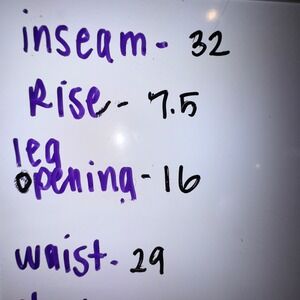 inseam - 32
Rise - 7.5
leg
opening - 16
waist - 29